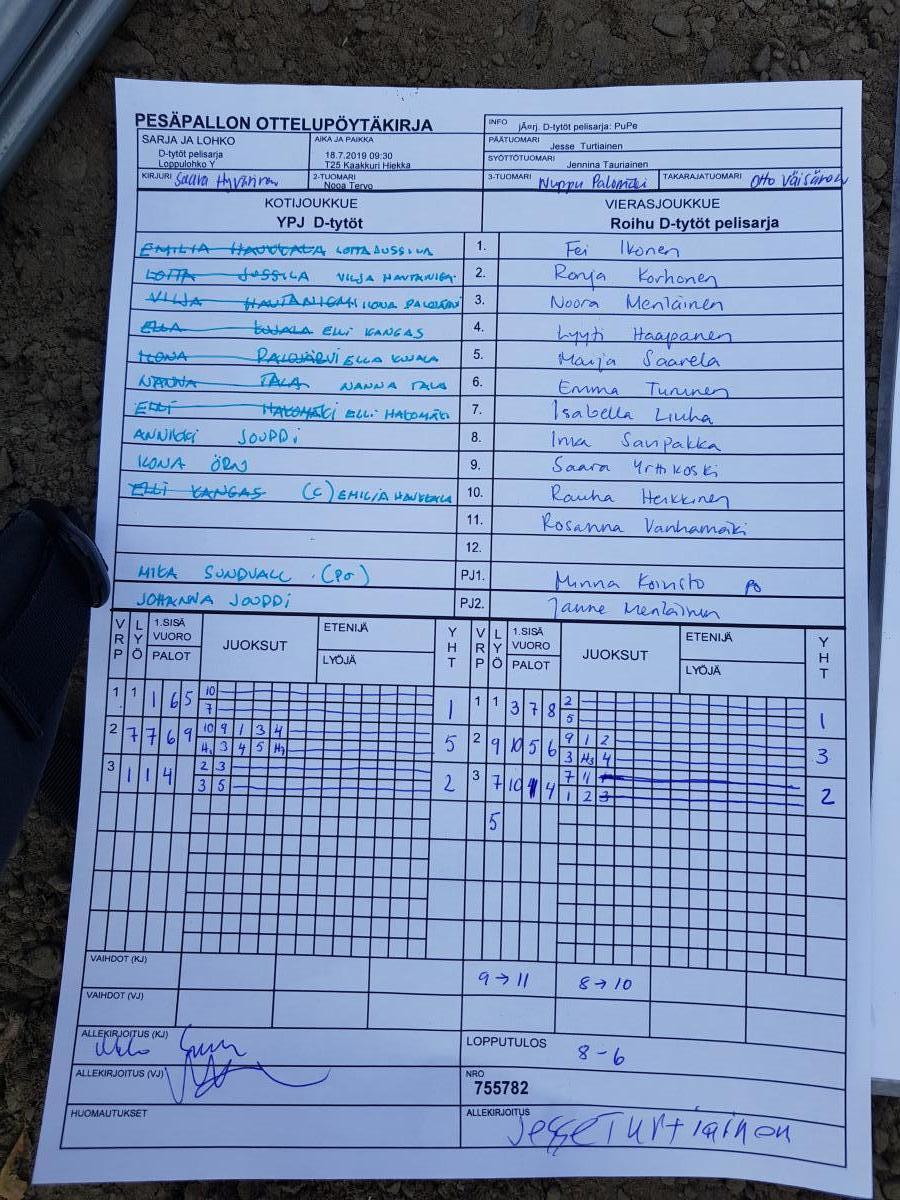 PESÄPALLON OTTELUPÖYTÄKIRJA
INFO jÃ¤rj. D-tytöt pelisarja: PuPe
SARJA JA LOHKO
D-tytöt pelisarja
Loppulohko Y
AIKA JA PAIKKA
18.7.2019 09:30
T25 Kaakkuri Hiekka
PÄÄTUOMARI Jesse Turtiainen
SYÖTTÖTUOMARI Jennina Tauriainen
KIRJURI Saara Hyvärinen
2-TUOMARI Nooa Tervo
3-TUOMARI Nuppu Palomäki
TAKARAJATUOMARI Otto Väisänen
KOTIJOUKKUE
YPJ D-tytöt
VIERASJOUKKUE
Roihu D-tytöt pelisarja
EMILIA HAUKKALA LOTTA JUSSILA 1. Fei Ikonen
LOTTA JUSSILA VILJA HAUTANIEMI 2. Ronja Korhonen
VILJA HAUTANIEMI ILONA PALOJÄRVI 3. Noora Menläinen
ELLA KUJALA ELLI KANGAS 4. Lyyti Haapanen
ILONA PALOJÄRVI ELLA KUJALA 5. Marja Saarela
NANNA TALA NANNA TALA 6. Emma Turunen
ELLI HALOMÄKI ELLI HALOMÄKI 7. Isabella Liuha
ANNIKKI JOUPPI 8. Inka Saripakka
ILONA ÖRN 9. Saara Yrttikoski
ELLI KANGAS (C) EMILIA HAUKKALA 10. Rauha Heikkinen
11. Rosanna Vanhamäki
12.
MIKA SUNDVALL (PO) PJ1. Minna Koivisto PO
JOHANNA JOUPPI PJ2. Janne Menläinen
VRP LYÖ 1.SISÄ VUORO PALOT JUOKSUT ETENIJÄ LYÖJÄ YHT VRP LYÖ 1.SISÄ VUORO PALOT JUOKSUT ETENIJÄ LYÖJÄ YHT
1 1 1 6 5 10 1 1 1 3 7 8 2 1
7 5
2 7 7 6 9 10 9 1 3 4 5 2 9 10 5 6 9 1 2 3
H1 3 4 5 H2 3 H3 4
3 1 1 4 2 3 2 3 7 10 4 7 11 2
3 5 1 2 3
5
VAIHDOT (KJ) 9→11 8→10
VAIHDOT (VJ)
ALLEKIRJOITUS (KJ)
LOPPUTULOS 8-6
ALLEKIRJOITUS (VJ)
NRO
755782
HUOMAUTUKSET
ALLEKIRJOITUS Jesse Turtiainen